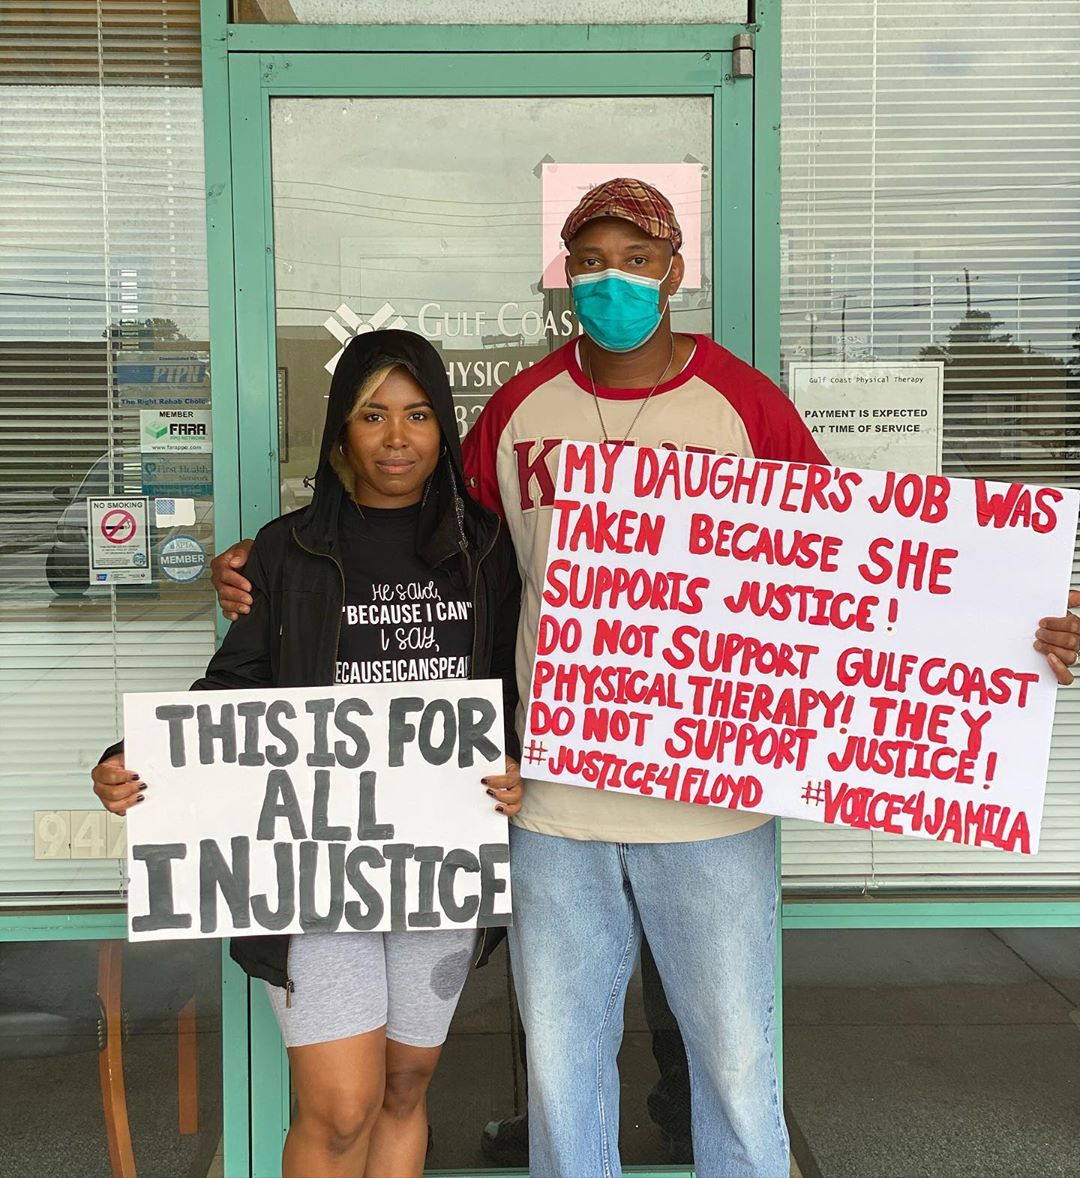 GULF COAST
PHYSICAL
PTPN
The Right Rehab Choice
MEMBER
FARA
PPO NETWORK
www.farappo.com
First Health
Network
NO SMOKING
APTA
MEMBER
947
Gulf Coast Physical Therapy
PAYMENT IS EXPECTED
AT TIME OF SERVICE
He said,
"BECAUSE I CAN"
I SAY,
ECAUSEICANSPEA
K
THIS IS FOR
ALL
INJUSTICE
MY DAUGHTER'S JOB WAS
TAKEN BECAUSE SHE
SUPPORTS JUSTICE!
DO NOT SUPPORT GULFCOAST
PHYSICAL THERAPY! THEY
DO NOT SUPPORT JUSTICE!
#JUSTICE4FLOYD #VOICE4JAMILA